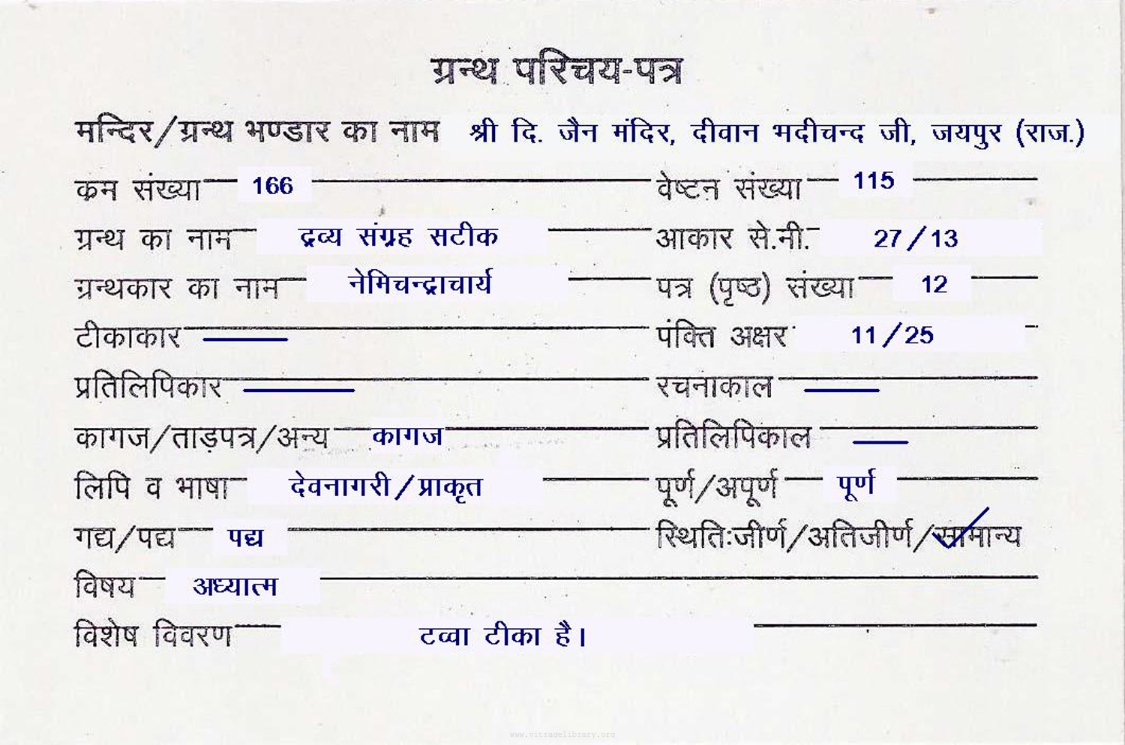 ग्रन्थ परिचय-पत्र
मन्दिर/ग्रन्थ भण्डार का नाम श्री दि. जैन मंदिर, दीवान भदीचन्द जी, जयपुर (राज.)
क्रम संख्या 166 वेष्टन संख्या 115
ग्रन्थ का नाम द्रव्य संग्रह सटीक आकार से.मी. 27/13
ग्रन्थकार का नाम नेमिचन्द्राचार्य पत्र (पृष्ठ) संख्या 12
टीकाकार — पंक्ति अक्षर 11/25
प्रतिलिपिकार — रचनाकाल —
कागज/ताड़पत्र/अन्य कागज प्रतिलिपिकाल —
लिपि व भाषा देवनागरी/प्राकृत पूर्ण/अपूर्ण पूर्ण
गद्य/पद्य पद्य स्थितिःजीर्ण/अतिजीर्ण/सामान्य
विषय अध्यात्म
विशेष विवरण टव्वा टीका है।